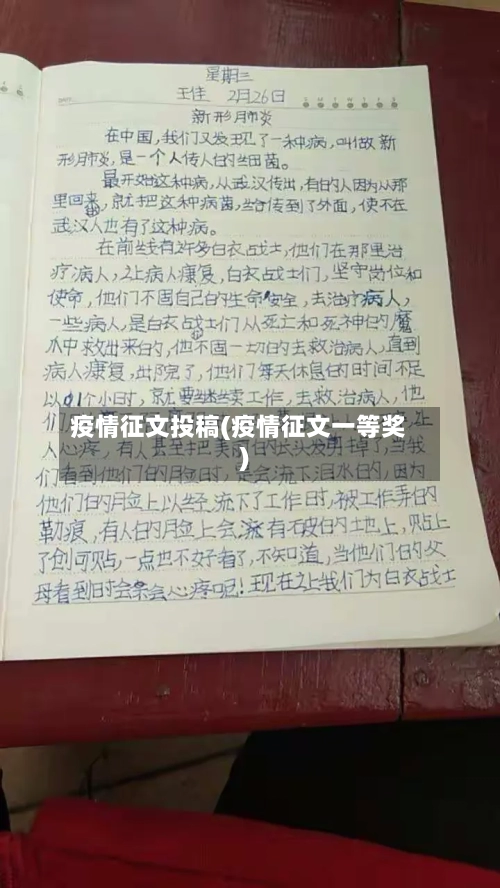 星期三
王佳 2月26日
新形肺炎
在中国,我们又发现了一种病,叫做新
形肺炎,是一个人传人的细菌。
最开始这种病,从武汉传出,有的人因为从那
里回来,就把这种病菌,给传到了外面,使不在
武汉人也有了这种病。
在前线有许多白衣战士,他们在那里治
疗病人,让病人康复,白衣战士们,坚守岗位和
使命,他们不固自己的生命安全,去治疗病人,
一些病人,是白衣战士们从死亡和死神的魔
爪中救出来的,他不固一切的去救治病人,直到
病人康复,出院了,他们每天休息的时间不足
以01个小时,就要继续工作,去救治病人,他
疫情征文投稿(疫情征文一等奖
)
人心疼,有人甚至把美丽的头发剪掉了,当我
们看到他们的脸时,是会流下泪水的,因为
他们的脸上以经流下了工作时,被工作弄的
勒痕,有人的脸上会有破的地上,贴上
了创可贴,一点也不好看了,不知道,当他们的父
母看到时会会心疼呢!现在让我们为白衣战士